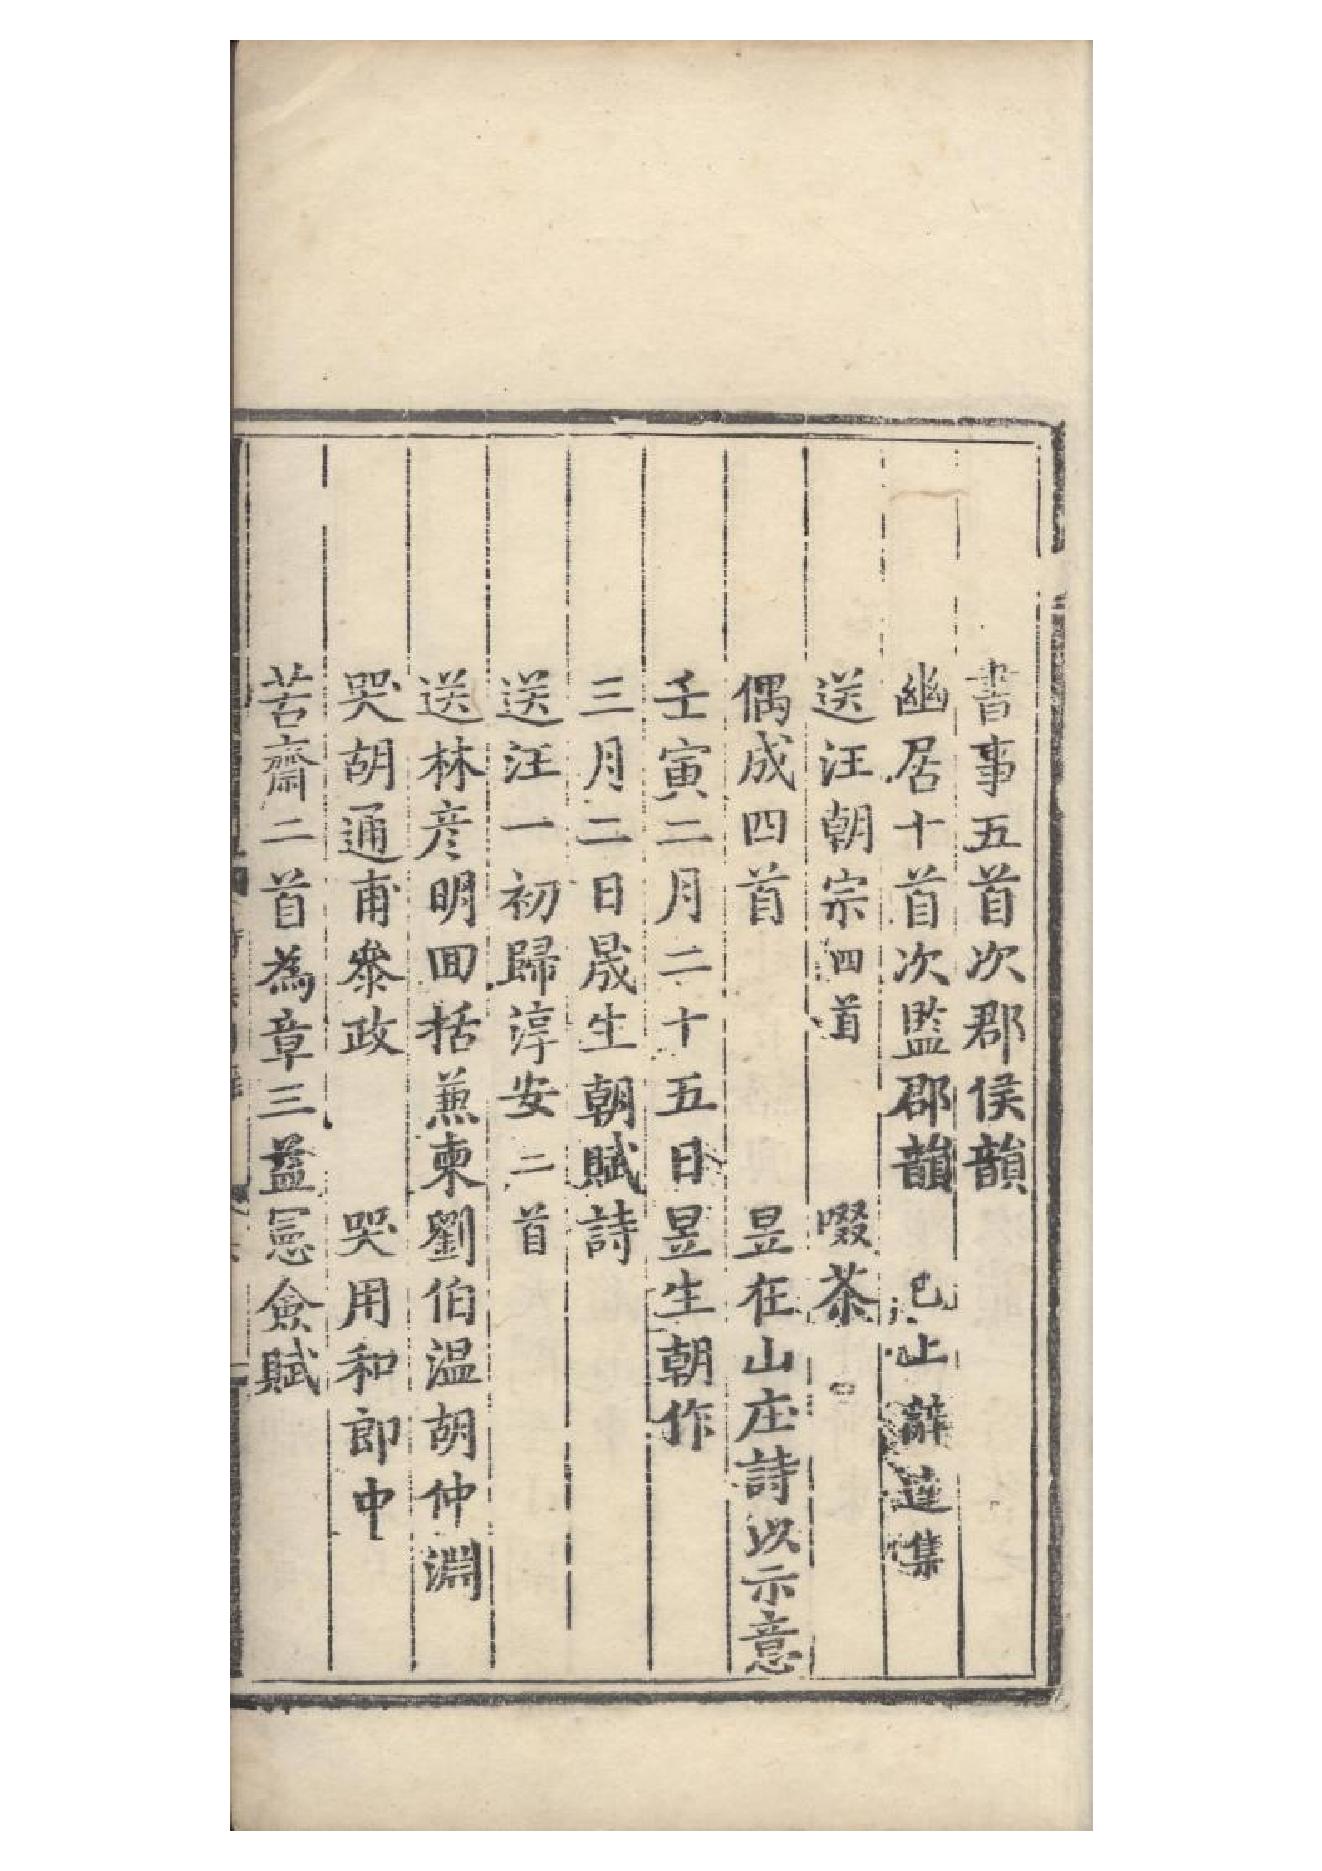 書事五首次郡侯韻
幽居十首次監郡韻　已上辭達集
送汪朝宗四首　啜茶
偶成四首　昱在山庄詩以示意
壬寅二月二十五日昱生朝作
三月二日晟生朝賦詩
送汪一初歸淳安二首
送林彦明囬括蒹柬劉伯温胡仲淵
哭胡通甫叅政　哭用和郎中
苦齋二首為章三益憲僉賦